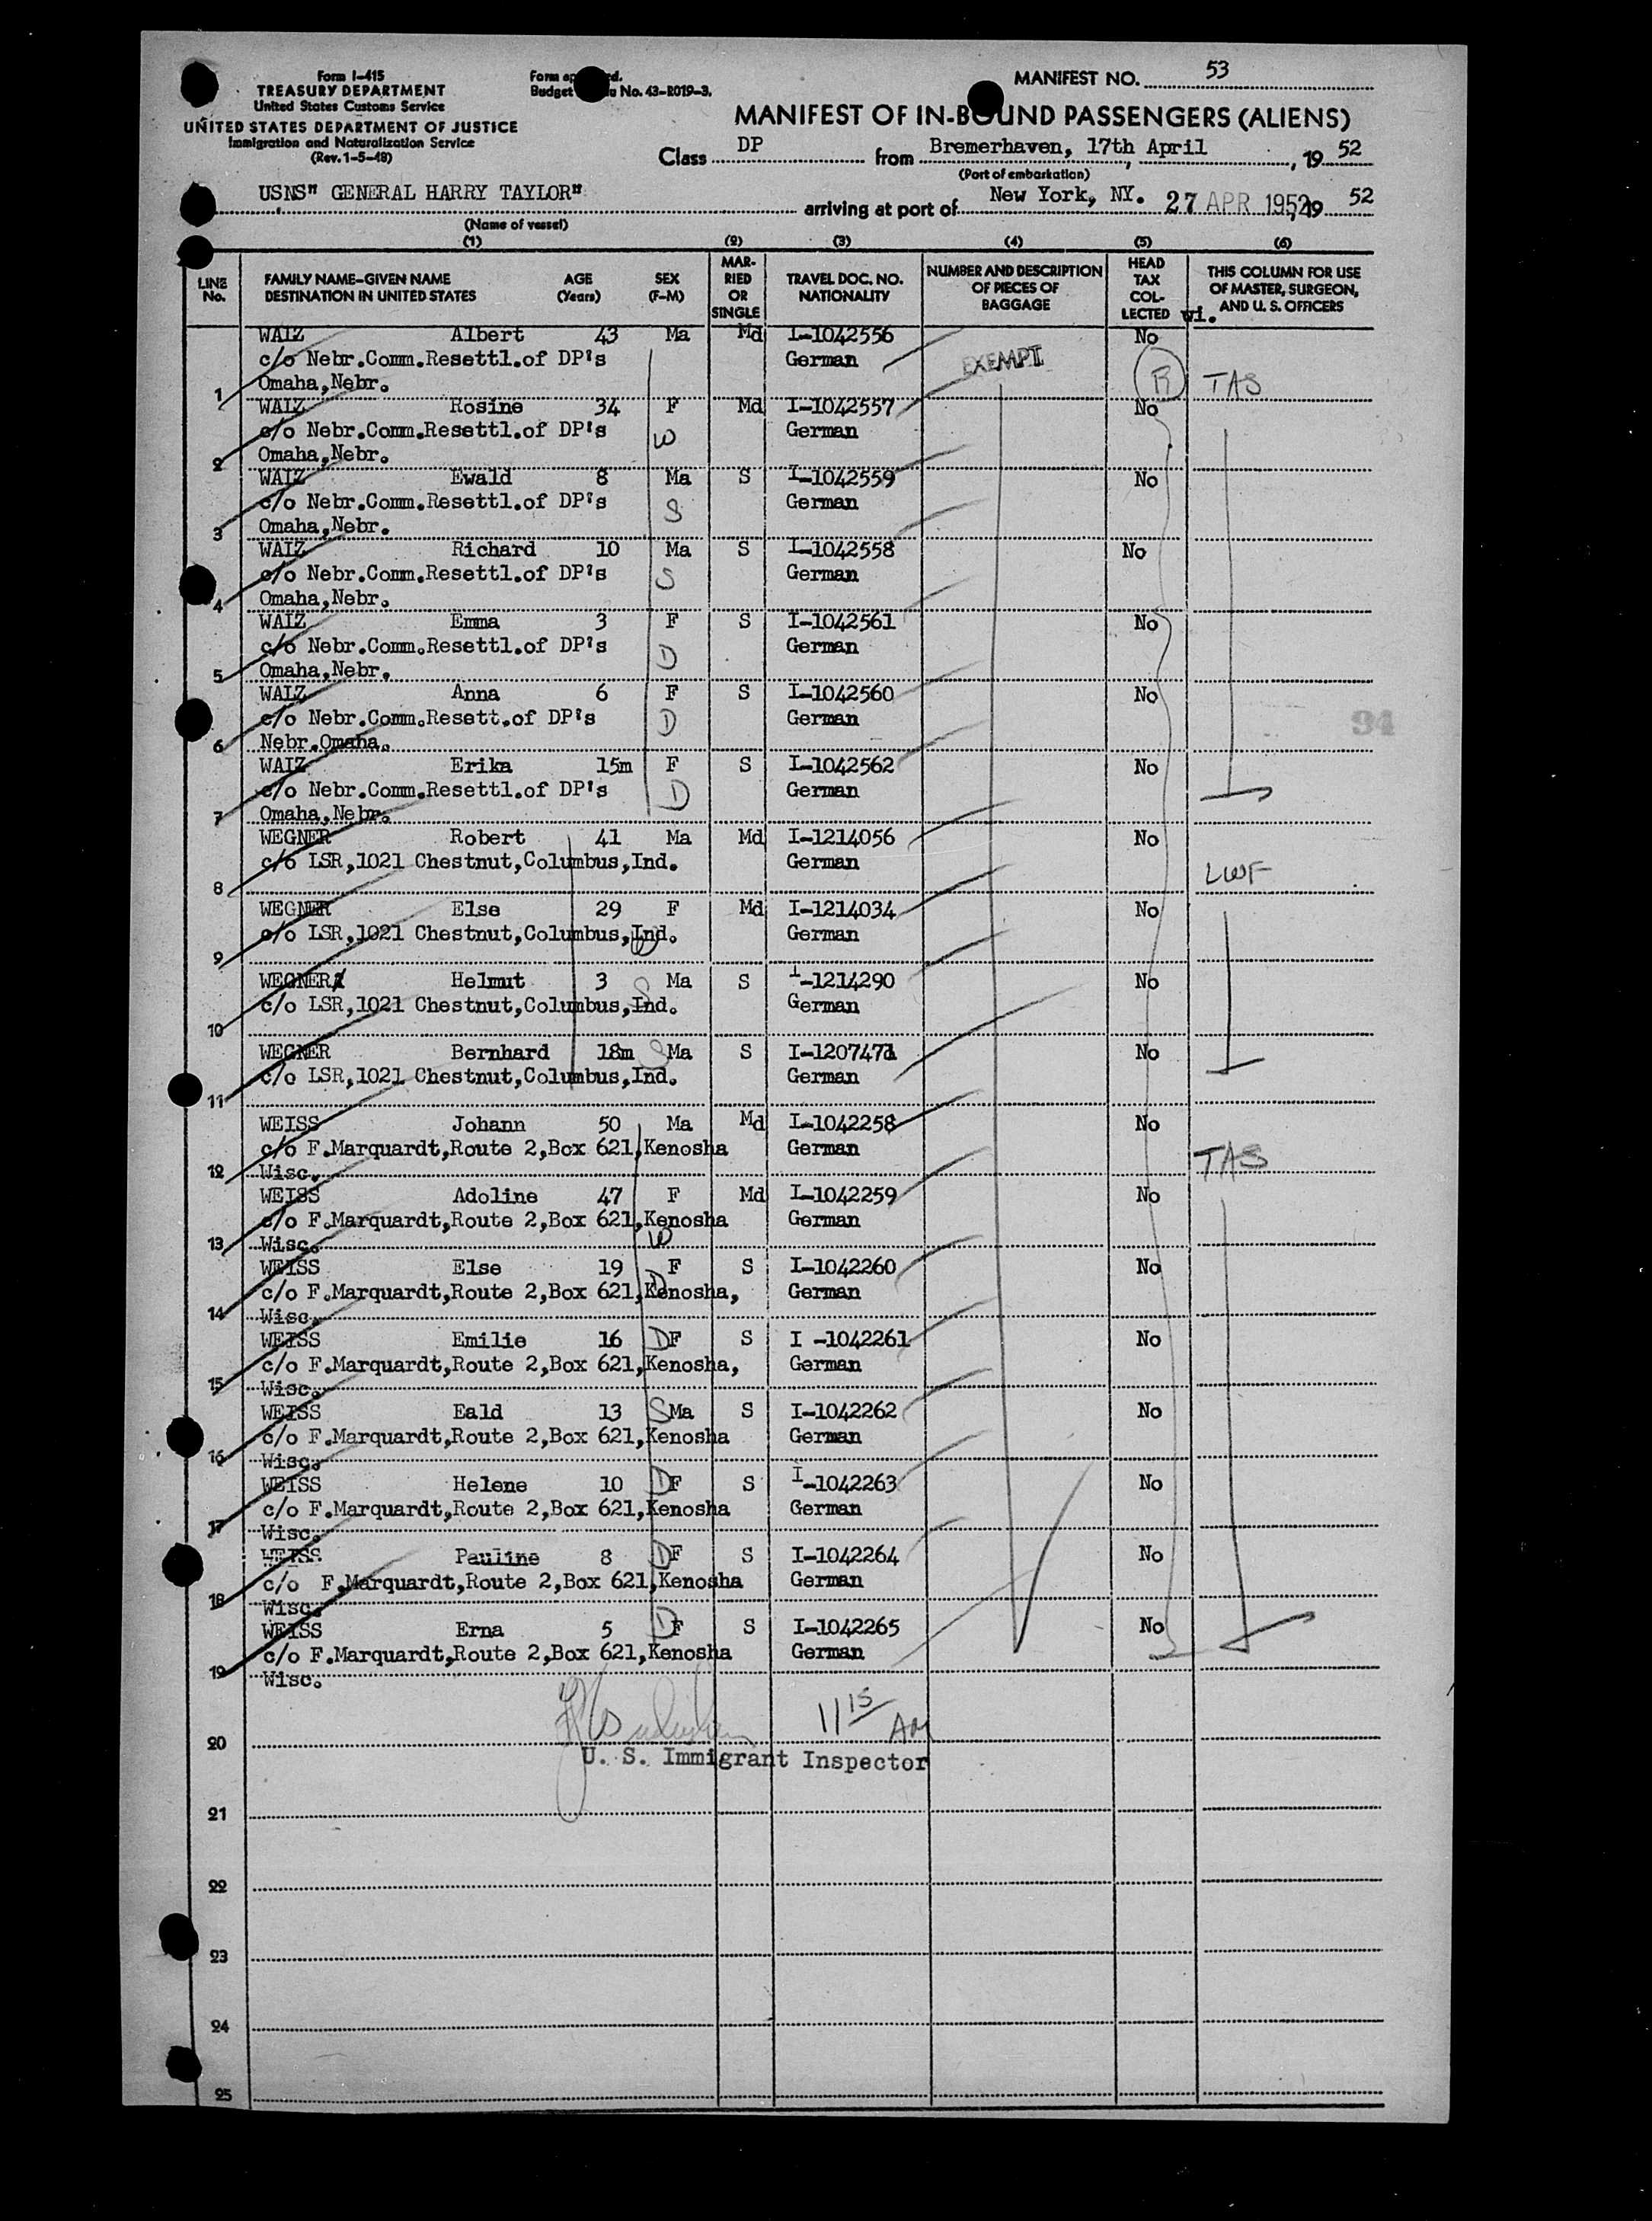 Form I-415
TREASURY DEPARTMENT
United States Customs Service
UNITED STATES DEPARTMENT OF JUSTICE
Immigration and Naturalization Service
(Rev. 1-5-48)
Form ap d.
Budget u No. 43-R019-3.
MANIFEST NO. 53
MANIFEST OF IN-BOUND PASSENGERS (ALIENS)
Class DP from Bremerhaven, 17th April, 19 52
(Port of embarkation)
USNS" GENERAL HARRY TAYLOR" arriving at port of New York, NY. 27 APR 1952, 19 52
(Name of vessel)
(1) (2) (3) (4) (5) (6)
LINE No. FAMILY NAME-GIVEN NAME DESTINATION IN UNITED STATES AGE (Years) SEX (F-M) MARRIED OR SINGLE TRAVEL DOC. NO. NATIONALITY NUMBER AND DESCRIPTION OF PIECES OF BAGGAGE HEAD TAX COLLECTED wi. THIS COLUMN FOR USE OF MASTER, SURGEON, AND U. S. OFFICERS
WALZ Albert 43 Ma Md I-1042556 No
c/o Nebr.Comm.Resettl.of DP's German EXEMPT
1 Omaha,Nebr. R TAS
WALZ Rosine 34 F Md I-1042557 No
c/o Nebr.Comm.Resettl.of DP's W German
2 Omaha,Nebr.
WALZ Ewald 8 Ma S I-1042559 No
c/o Nebr.Comm.Resettl.of DP's S German
3 Omaha,Nebr.
WALZ Richard 10 Ma S I-1042558 No
c/o Nebr.Comm.Resettl.of DP's S German
4 Omaha,Nebr.
WALZ Emma 3 F S I-1042561 No
c/o Nebr.Comm.Resettl.of DP's D German
5 Omaha,Nebr.
WALZ Anna 6 F S I-1042560 No
c/o Nebr.Comm.Resett.of DP's D German 94
6 Nebr.Omaha.
WALZ Erika 15m F S I-1042562 No
c/o Nebr.Comm.Resettl.of DP's D German
7 Omaha,Nebr.
WEGNER Robert 41 Ma Md I-1214056 No
c/o LSR,1021 Chestnut,Columbus,Ind. German LWF
8
WEGNER Else 29 F Md I-1214034 No
c/o LSR,1021 Chestnut,Columbus,Ind. W German
9
WEGNER Helmut 3 S Ma S I-1214290 No
c/o LSR,1021 Chestnut,Columbus,Ind. German
10
WEGNER Bernhard 18m S Ma S I-1207471 No
c/o LSR,1021 Chestnut,Columbus,Ind. German
11
WEISS Johann 50 Ma Md I-1042258 No
c/o F.Marquardt,Route 2,Box 621,Kenosha German TAS
12 Wisc.
WEISS Adoline 47 F Md I-1042259 No
c/o F.Marquardt,Route 2,Box 621,Kenosha German
13 Wisc. W
WEISS Else 19 F S I-1042260 No
c/o F.Marquardt,Route 2,Box 621,Kenosha, D German
14 Wisc.
WEISS Emilie 16 D F S I -1042261 No
c/o F.Marquardt,Route 2,Box 621,Kenosha, German
15 Wisc.
WEISS Eald 13 S Ma S I-1042262 No
c/o F.Marquardt,Route 2,Box 621,Kenosha German
16 Wisc.
WEISS Helene 10 D F S I-1042263 No
c/o F.Marquardt,Route 2,Box 621,Kenosha German
17 Wisc.
WEISS Pauline 8 D F S I-1042264 No
c/o F.Marquardt,Route 2,Box 621,Kenosha German
18 Wisc.
WEISS Erna 5 D F S I-1042265 No
c/o F.Marquardt,Route 2,Box 621,Kenosha German
19 Wisc.
11 15 AM
20
U. S. Immigrant Inspector
21
22
23
24
25